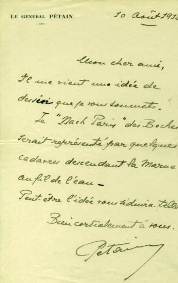 LE GÉNÉRAL PÉTAIN
10 Août 191
Mon cher ami,
Il me vient une idée de
dessin que je vous soumets.
Le "Nach Paris" des Boches
serait représenté par quelques
cadavres descendant la Marne
au fil de l'eau -
Peut être l'idée vous séduira t elle
Bien cordialement à vous.
Pétain